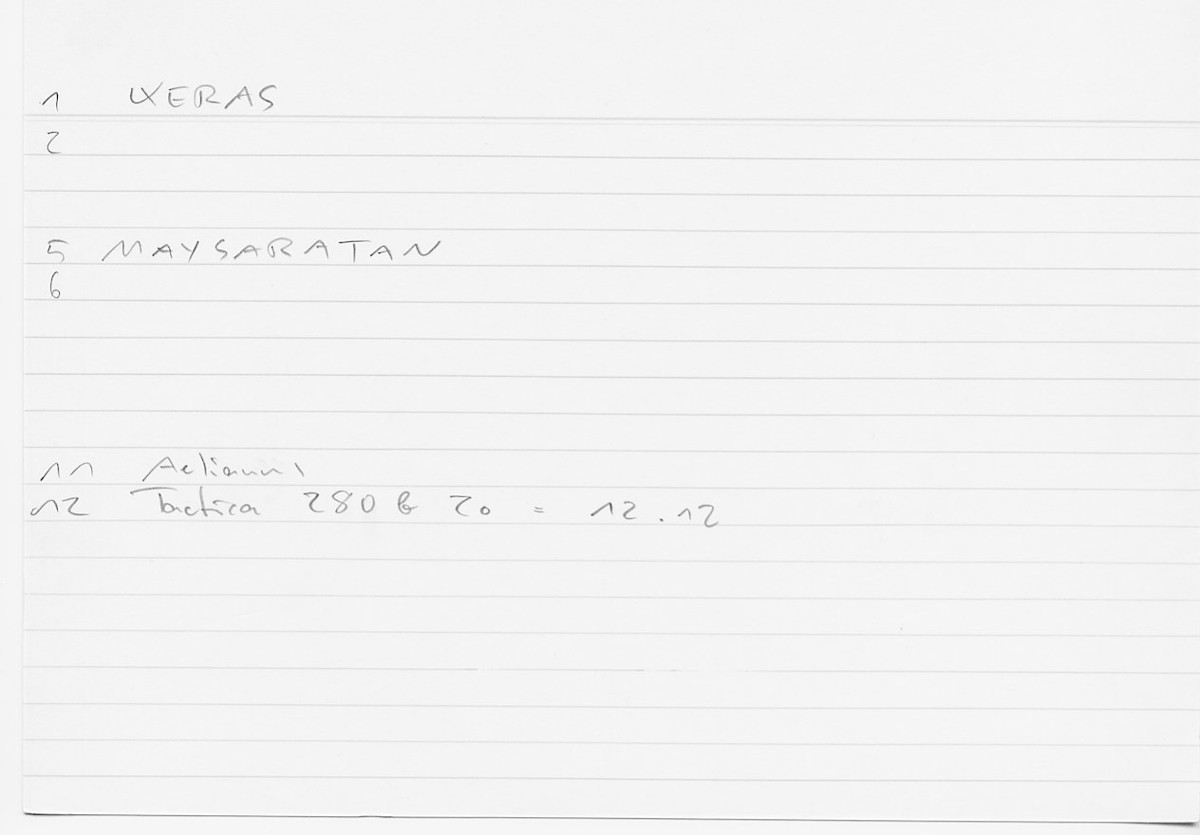 1 KERAS
2
5 MAYSARATAN
6
11 Aelianus
12 Tactica 280 b 20 = 12.12